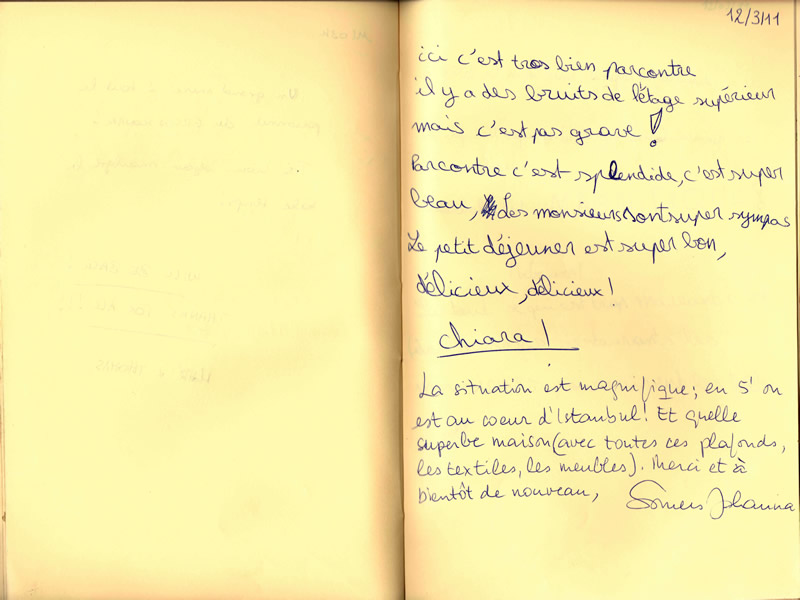 12/3/11
ici c'est tros bien parcontre
il y a des bruits de l'étage supérieur
mais c'est pas grave !
Parcontre c'est splendide, c'est super
beau, Les monsieurs sont super sympas
Le petit déjeuner est super bon,
délicieux, délicieux !
chiara !
La situation est magnifique ; en 5' on
est au coeur d'Istanbul ! Et quelle
superbe maison (avec toutes ces plafonds,
les textiles, les meubles). Merci et à
bientôt de nouveau, Somers Johanna